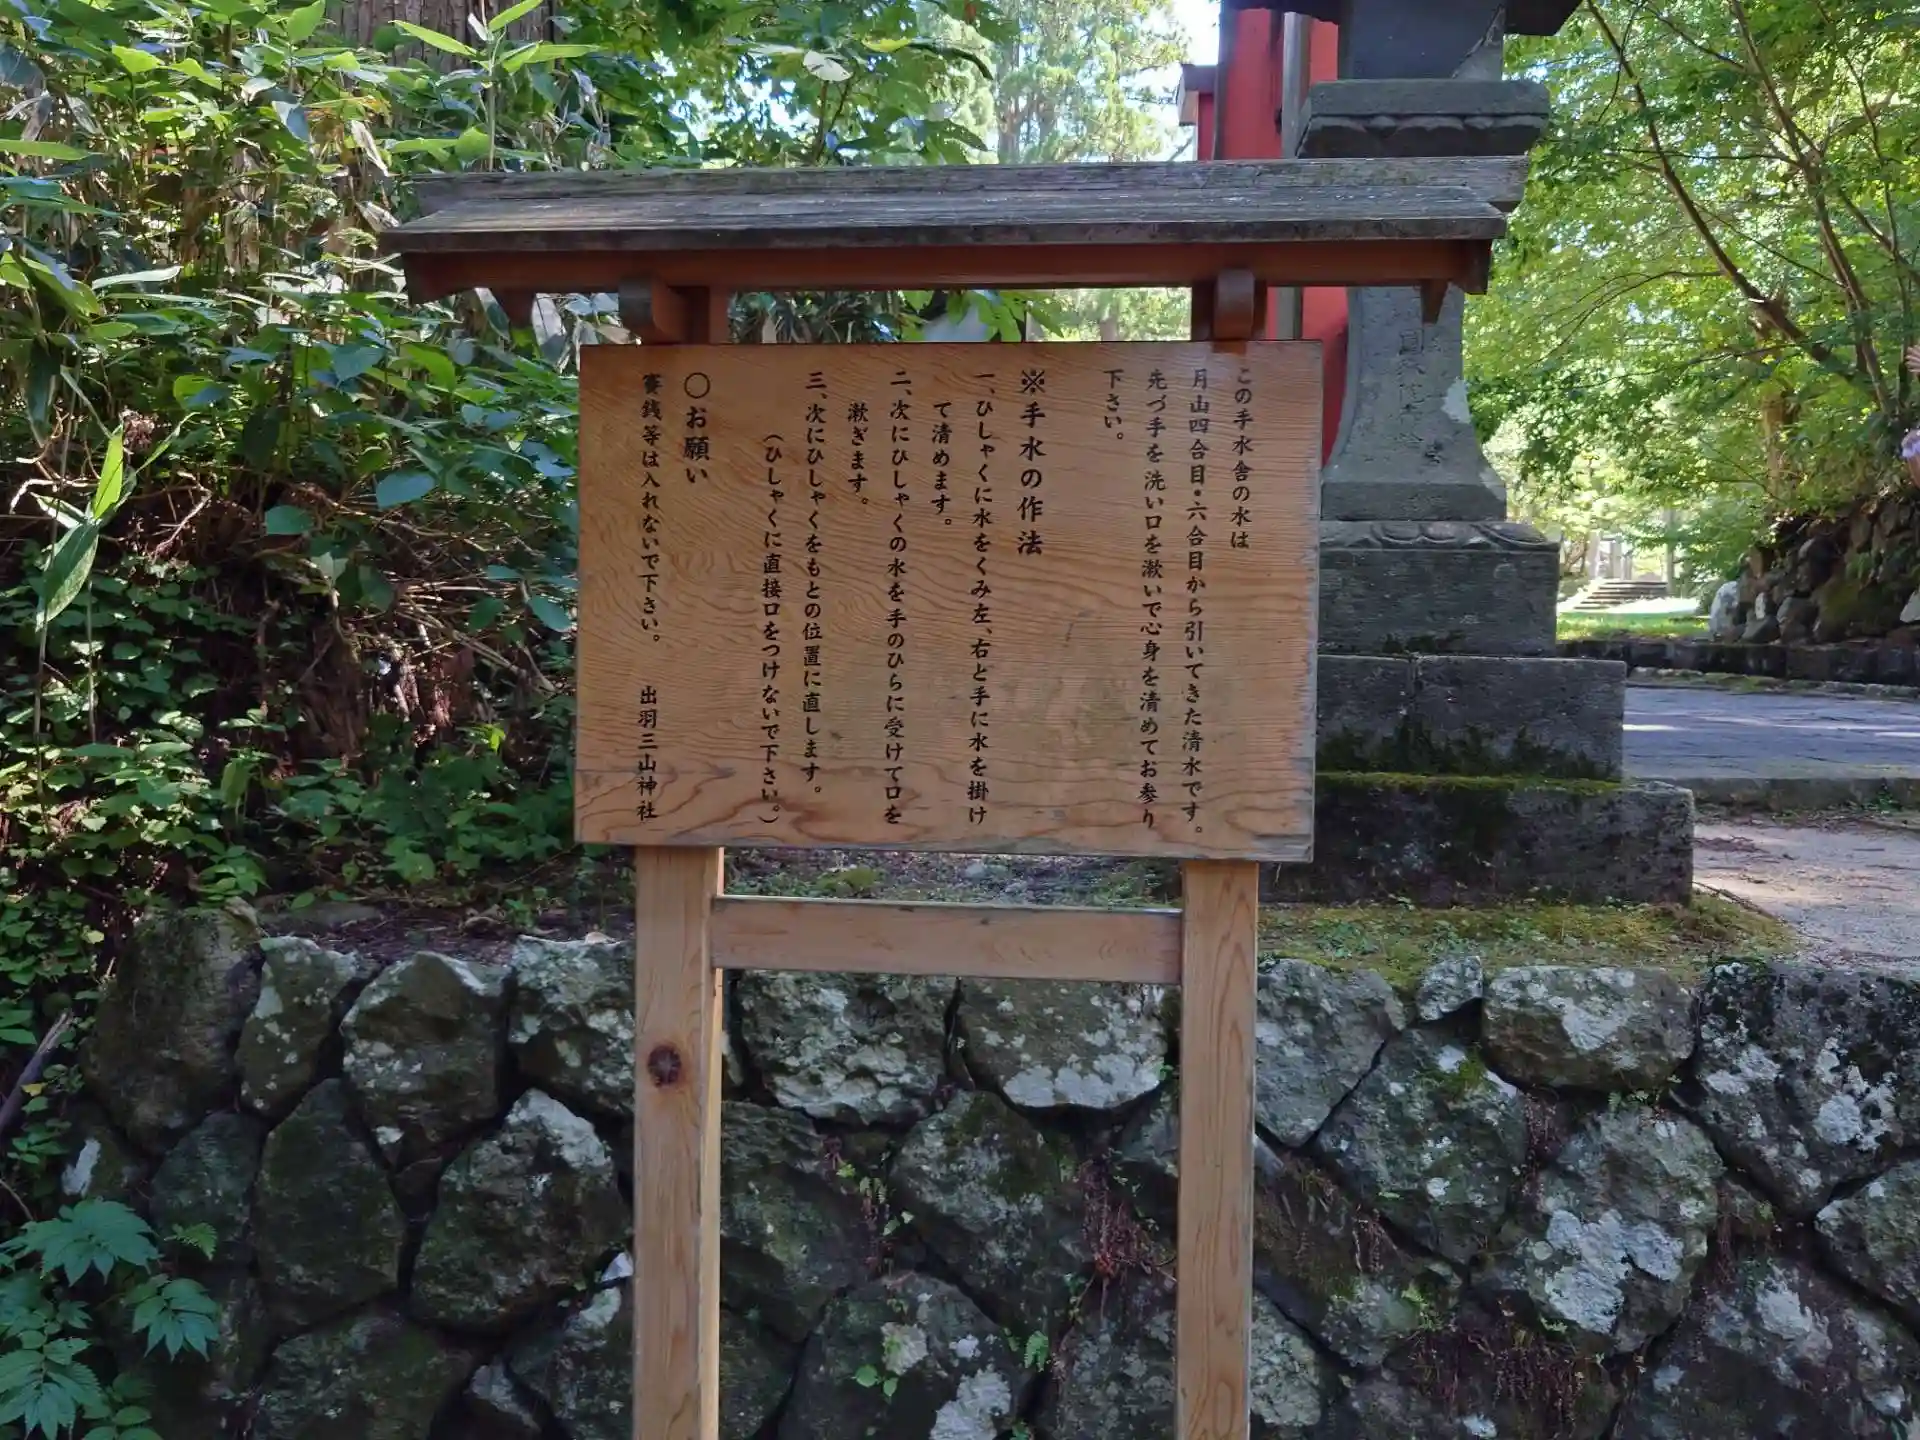 この手水舎の水は
月山四合目・六合目から引いてきた清水です。
先づ手を洗い口を漱いで心身を清めてお参り
下さい。
※手水の作法
一、ひしゃくに水をくみ左、右と手に水を掛け
て清めます。
二、次にひしゃくの水を手のひらに受けて口を
漱ぎます。
三、次にひしゃくをもとの位置に直します。
（ひしゃくに直接口をつけないで下さい。）
〇お願い
賽銭等は入れないで下さい。 出羽三山神社